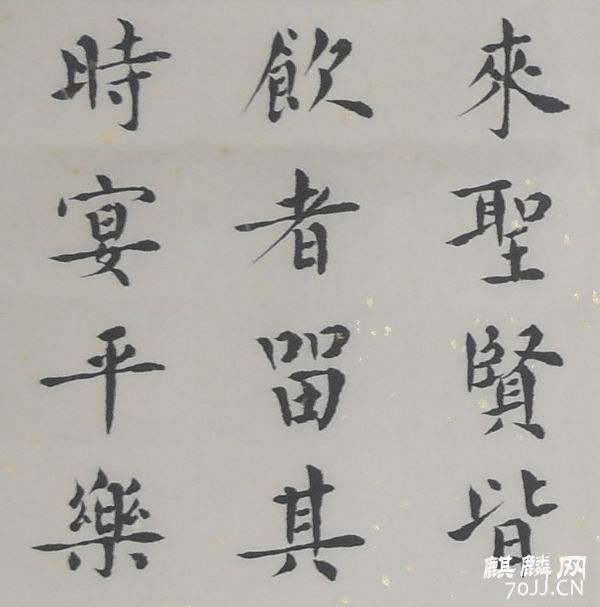 來聖賢皆
飲者留其
時宴平樂
麒麟网
70JJ.CN